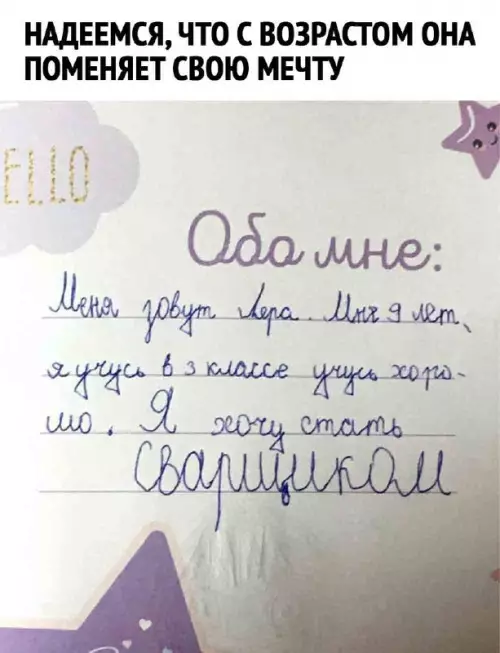 НАДЕЕМСЯ, ЧТО С ВОЗРАСТОМ ОНА
ПОМЕНЯЕТ СВОЮ МЕЧТУ
ELLO
Обо мне:
Меня зовут Лера. Мне 9 лет,
я учусь в 3 классе учусь хоро-
шо. Я хочу стать
сварщиком